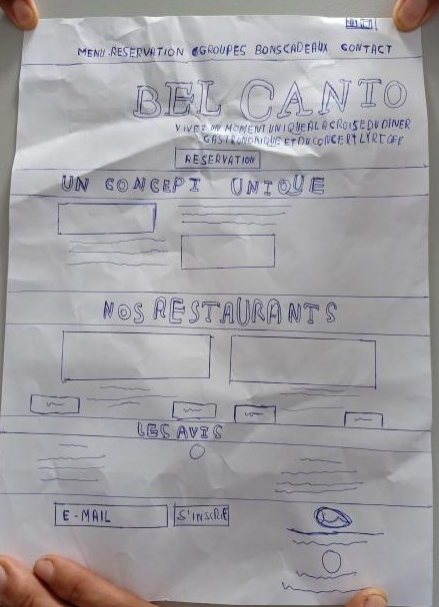 MENU RESERVATION GROUPES BONSCADEAUX CONTACT
BEL CANTO
VIVEZ UN MOMENT UNIQUE A LA CROISE DU DINER
GASTRONOMIQUE ET DU CONCERT LYRIQUE
RESERVATION
UN CONCEPT UNIQUE
NOS RESTAURANTS
LES AVIS
E-MAIL S'INSCRIE